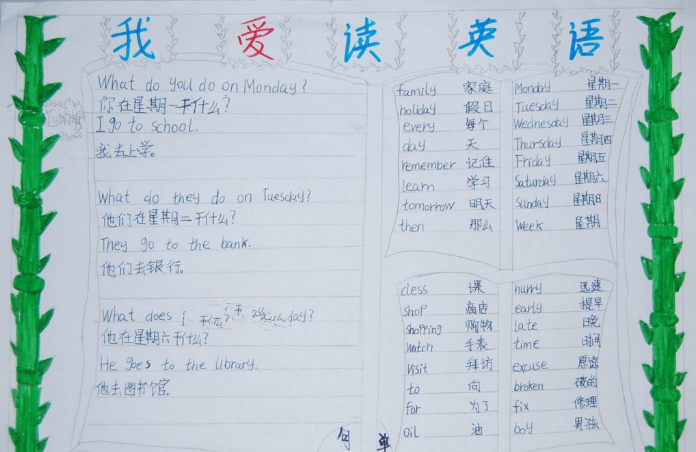 我 爱 读 英 语
What do you do on Monday?
你在星期一干什么?
I go to school.
我去上学。
What do they do on Tuesday?
他们在星期二干什么?
They go to the bank.
他们去银行。
What does day?
他在星期六干什么?
He goes to the library.
他去图书馆。
句
family 家庭
holiday 假日
every 每个
day 天
remember 记住
learn 学习
tomorrow 明天
then 那么
Monday 星期一
Tuesday 星期二
Wednesday 星期三
Thursday 星期四
Friday 星期五
Saturday 星期六
Sunday 星期日
Week 星期
cless 课
shop 商店
shopping 购物
watch 手表
visit 拜访
to 向
for 为了
oil 油
hurry 迅速
early 提早
late 晚
time 时间
excuse 原谅
broken 破的
fix 修理
boy 男孩
单